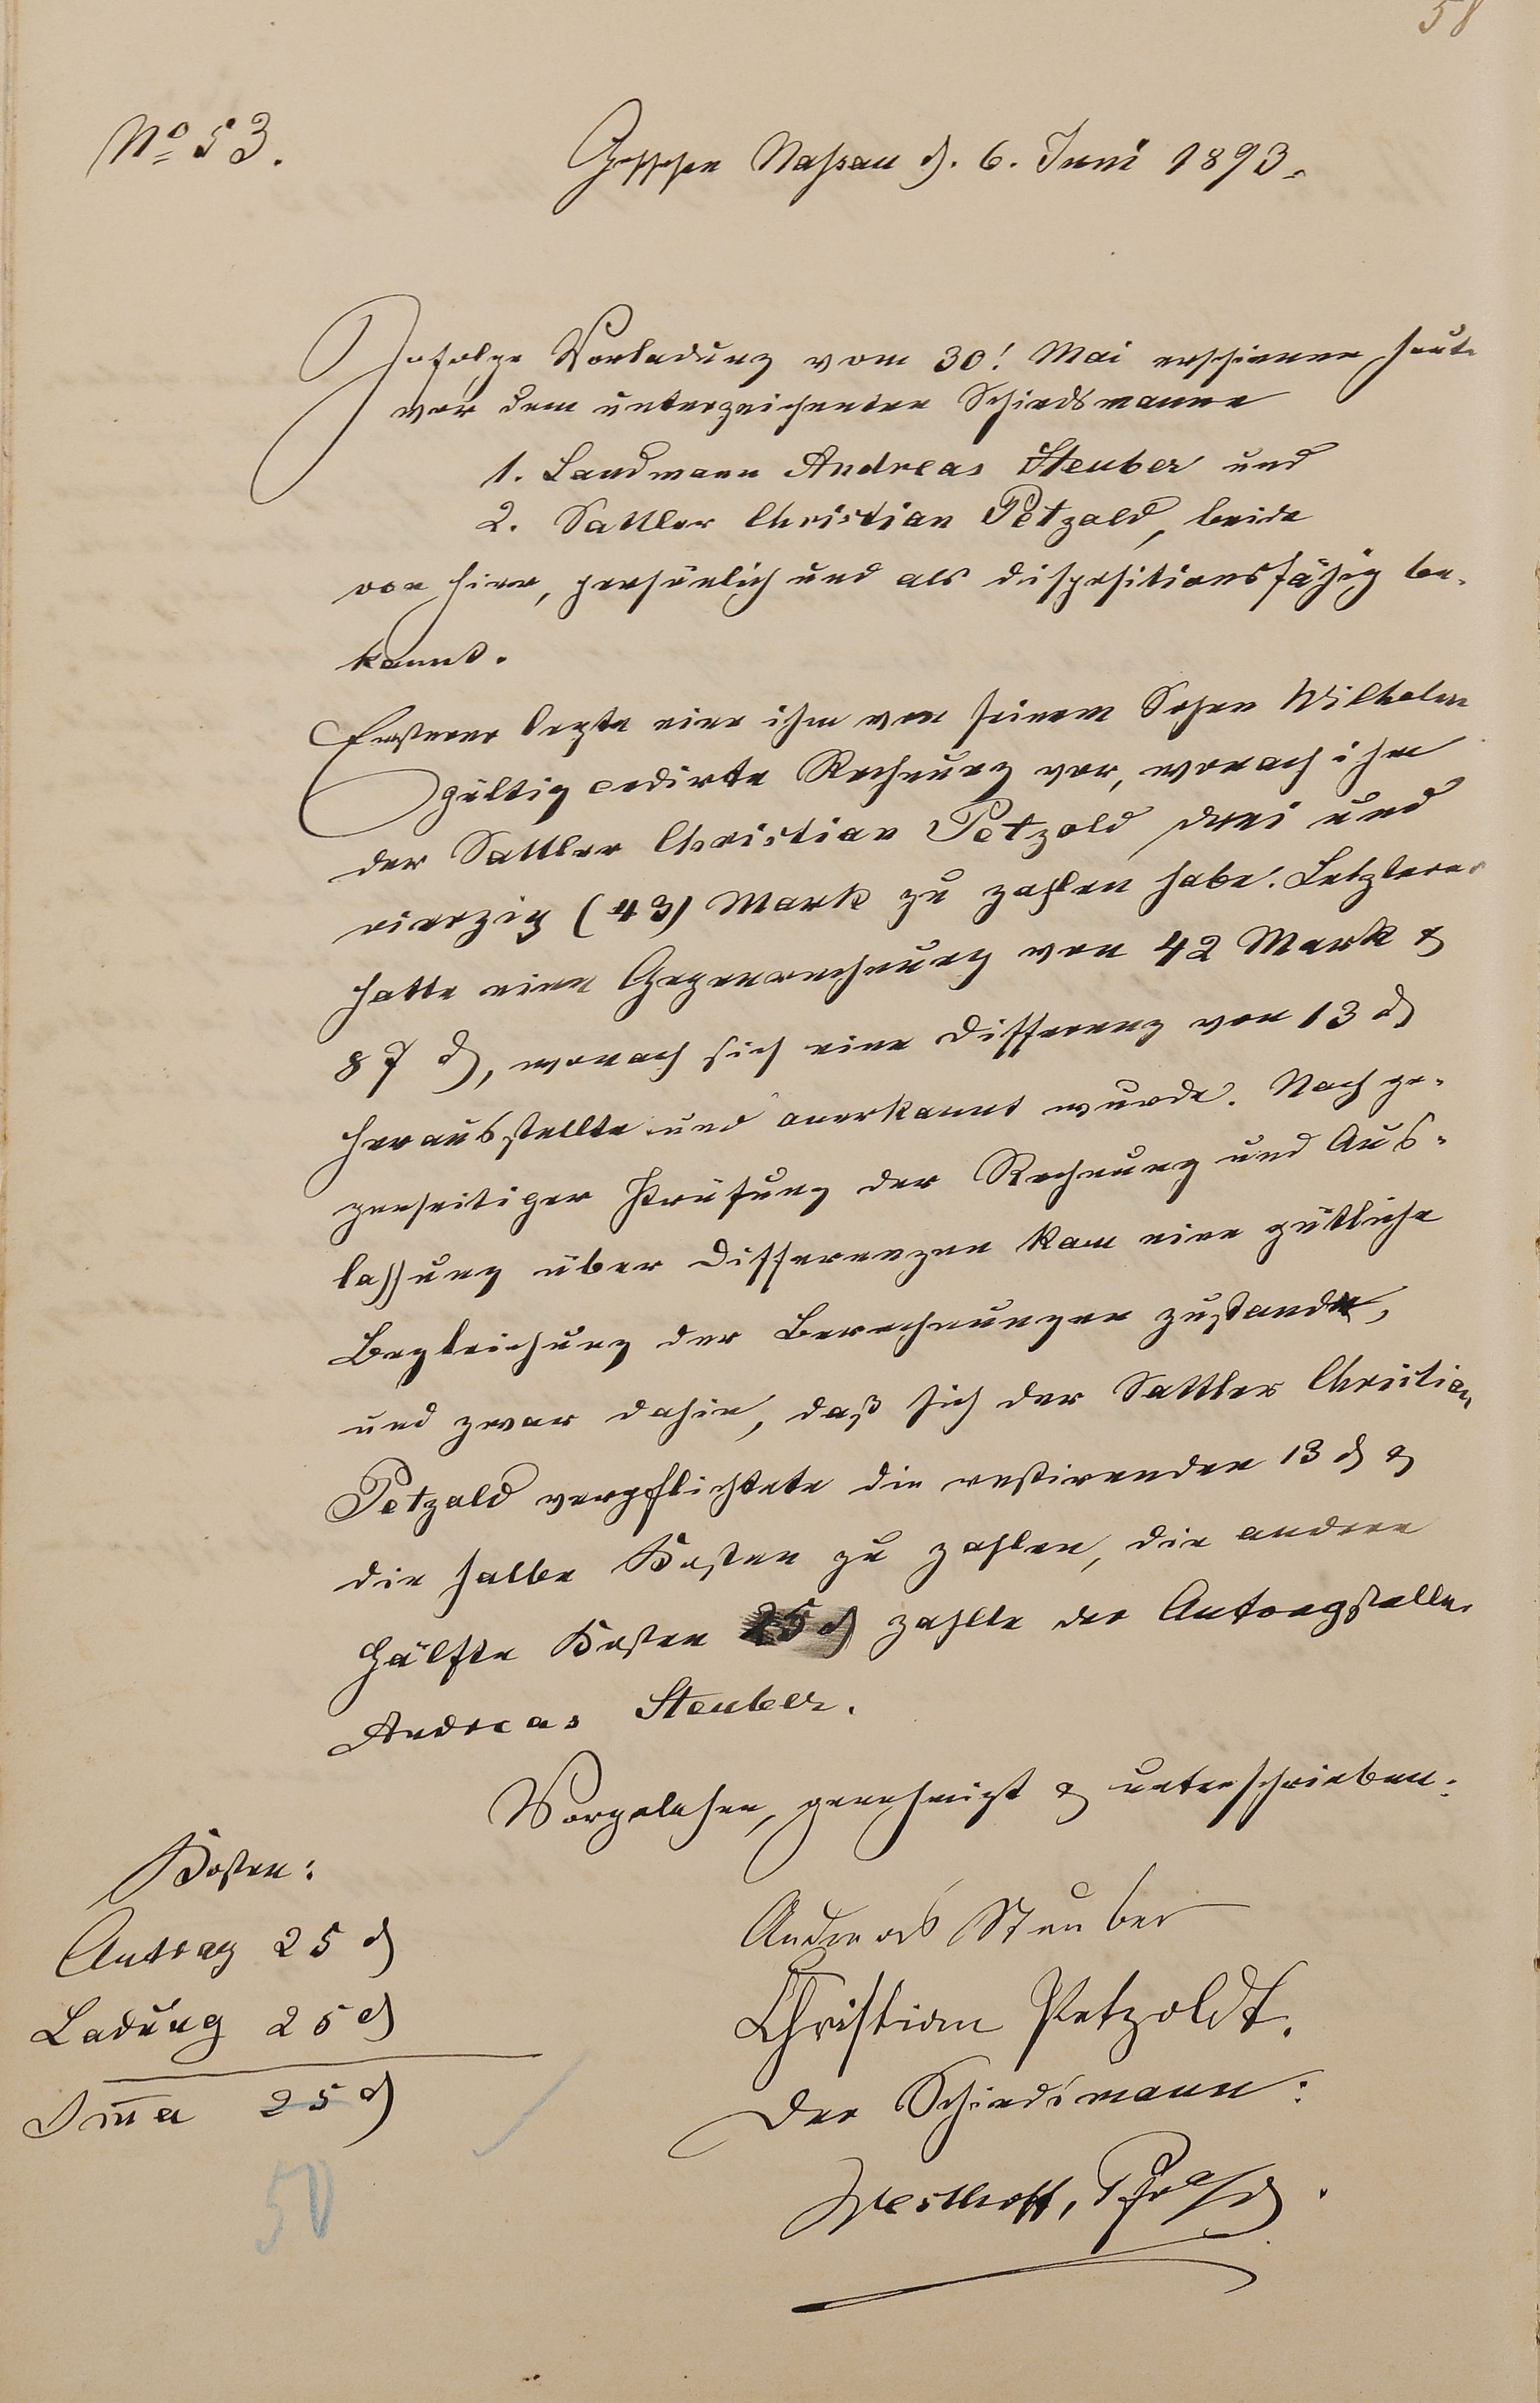 58
No 53.
Geschehen Nassau d. 6. Juni 1893.
Infolge Vorladung vom 30! Mai erschienen heute
vor dem unterzeichneten Schiedsmanne
1. Landmann Andreas Steuber und
2. Sattler Christian Petzold, beide
von hier, persönlich und als dispositionsfähig be-
kannt.
Ersterer legte eine ihm von seinem Sohne Wilhelm
gültig cedirte Rechnung vor, wonach ihm
der Sattler Christian Petzold drei und
vierzig (43) Mark zu zahlen habe. Letzterer
hatte eine Gegenrechnung von 42 Mark &
87 ₰, wonach sich eine Differenz von 13 ₰
herausstellte und anerkannt wurde. Nach ge-
genseitiger Prüfung der Rechnung und Aus-
lassung über Differenzen kam eine gütliche
Begleichung der Berechnungen zustande,
und zwar dahin, daß sich der Sattler Christian
Petzold verpflichtete die restirenden 13 ₰ &
die halbe Kosten zu zahlen, die andere
Hälfte Kosten 25 ₰ zahlte der Antragsteller
Andreas Steuber.
Vorgelesen, genehmigt & unterschrieben:
Kosten:
Antrag 25 ₰
Ladung 25 ₰
Sma 25 ₰
50
Andreas Steuber
Christian Petzoldt.
Der Schiedsmann:
Westhoff,